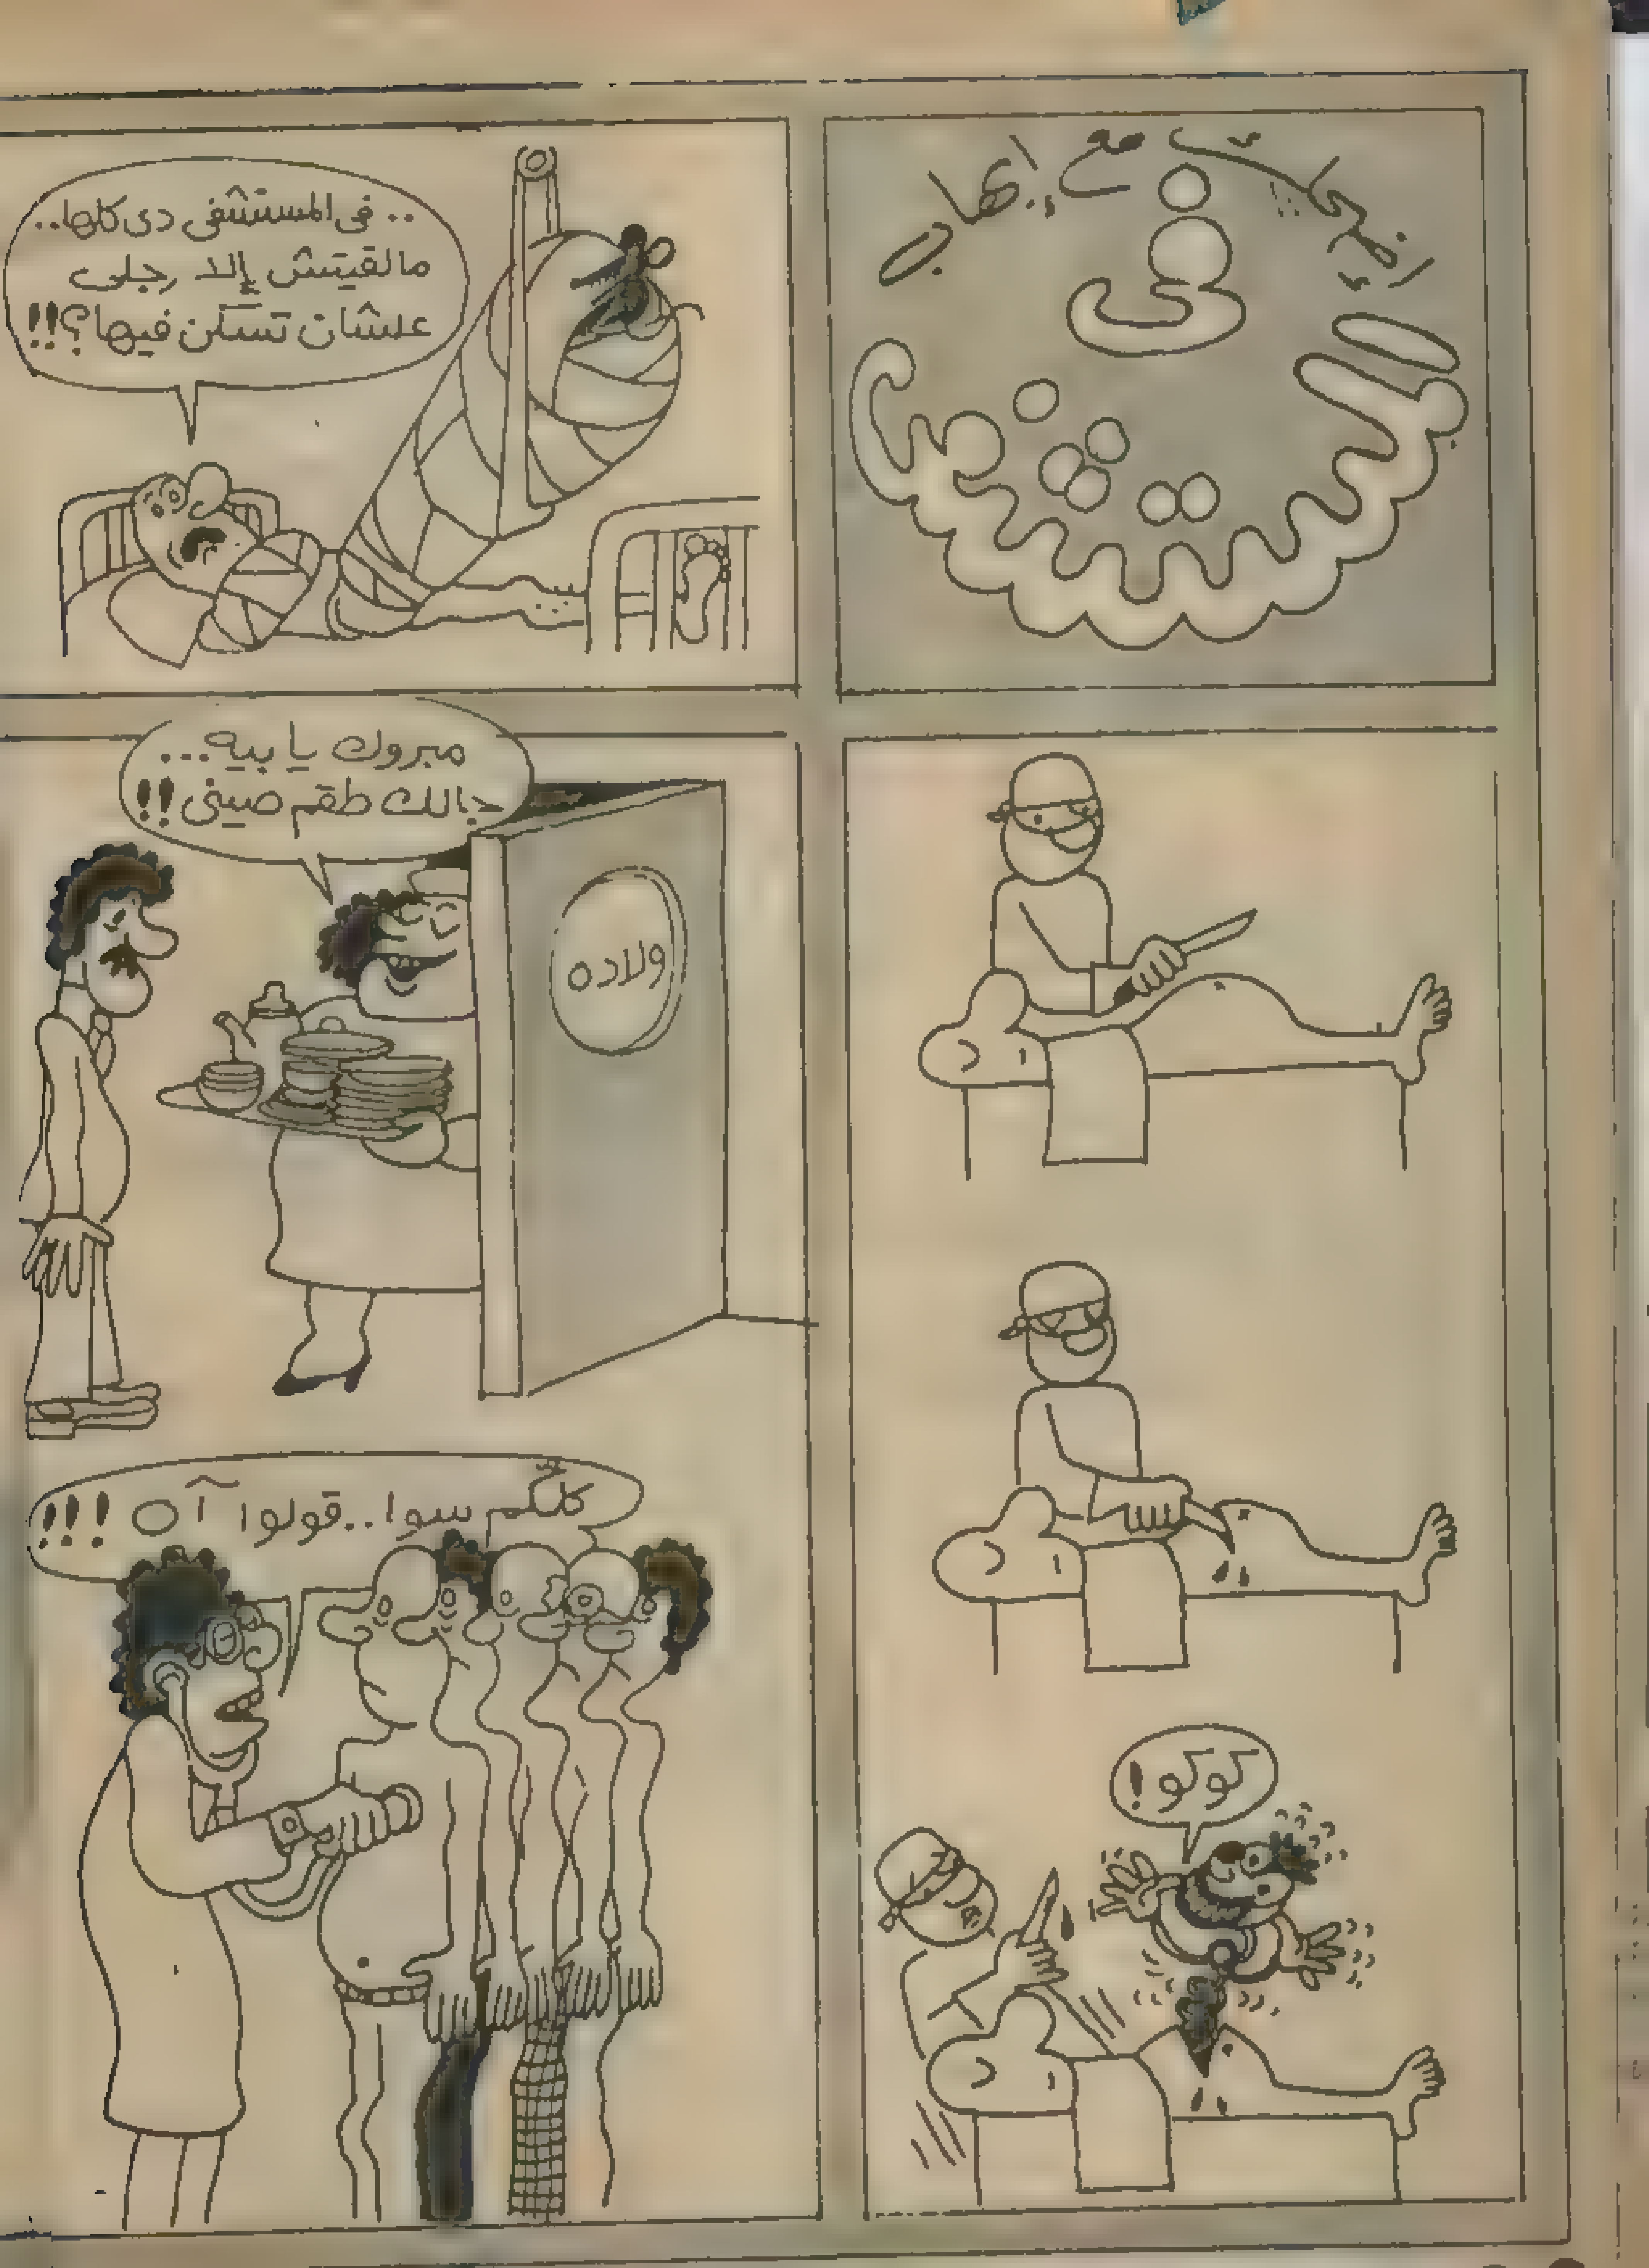 إضحك مع إيهاب
فى
المستشفى
.. فى المستشفى دى كلها..
مالقيتش إلا رجلى
علشان تسكن فيها؟!!
مبروك يا بيه...
جالك طقم صينى!!
ولاده
كلّكم سوا..قولوا آ ه !!!
كوكو!